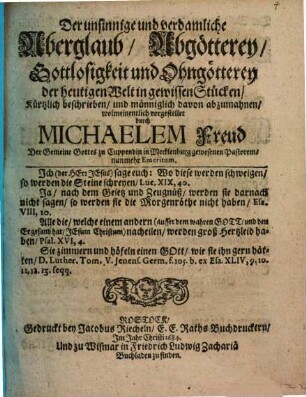 Der unsinnige und verdamliche
Aberglaub/ Abgötterey/
Gottlosigkeit und Ohngötterey
der heutigen Welt in gewissen Stücken/
Kürtzlich beschrieben/ und männiglich davon abzumahnen/
wolmeinentlich vorgestellet
durch
MICHAELEM Freud
Der Gemeine Gottes zu Cuppendin in Mecklenburg gewesenen Pastorem/
nunmehr Emeritum.
Ich (der HErr JEsus) sage euch: Wo diese werden schweigen/
so werden die Steine schreyen/ Luc. XIX, 40.
Ja/ nach dem Gesetz und Zeugnüß/ werden sie darnach
nicht sagen/ so werden sie die Morgenröthe nicht haben/ Esa.
VIII, 20.
Alle die/ welche einem andern (ausser dem wahren GOTT/ und den
Er gesand hat/ JEsum Christum) nacheilen/ werden groß Hertzleid ha-
ben/ Psal. XVI, 4.
Sie zimmern und höfeln einen GOtt/ wie sie ihn gern hät-
ten/ D. Luther. Tom. V. Jenens. Germ. f. 105. b. ex Esa. XLIV, 9, 10.
11, 12. 13. seqq.
ROSTOCK/
Gedruckt bey Jacobus Riecheln/ E. E. Raths Buchdruckern/
Im Jahr Christi 1684.
Und zu Wismar in Friedrich Ludwig Zachariä
Buchladen zu finden.